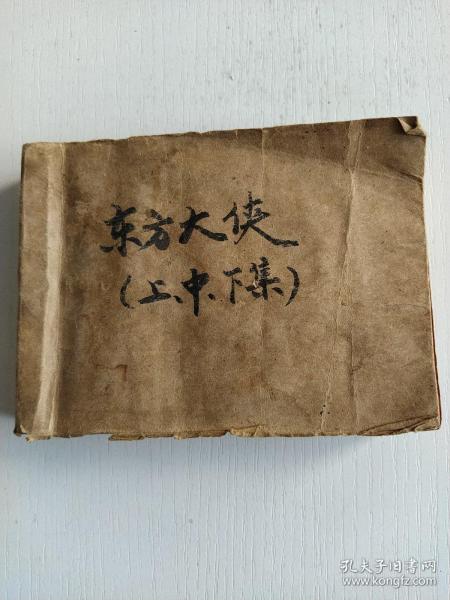 东方大侠
(上、中、下集)
孔夫子旧书网
www.kongfz.com